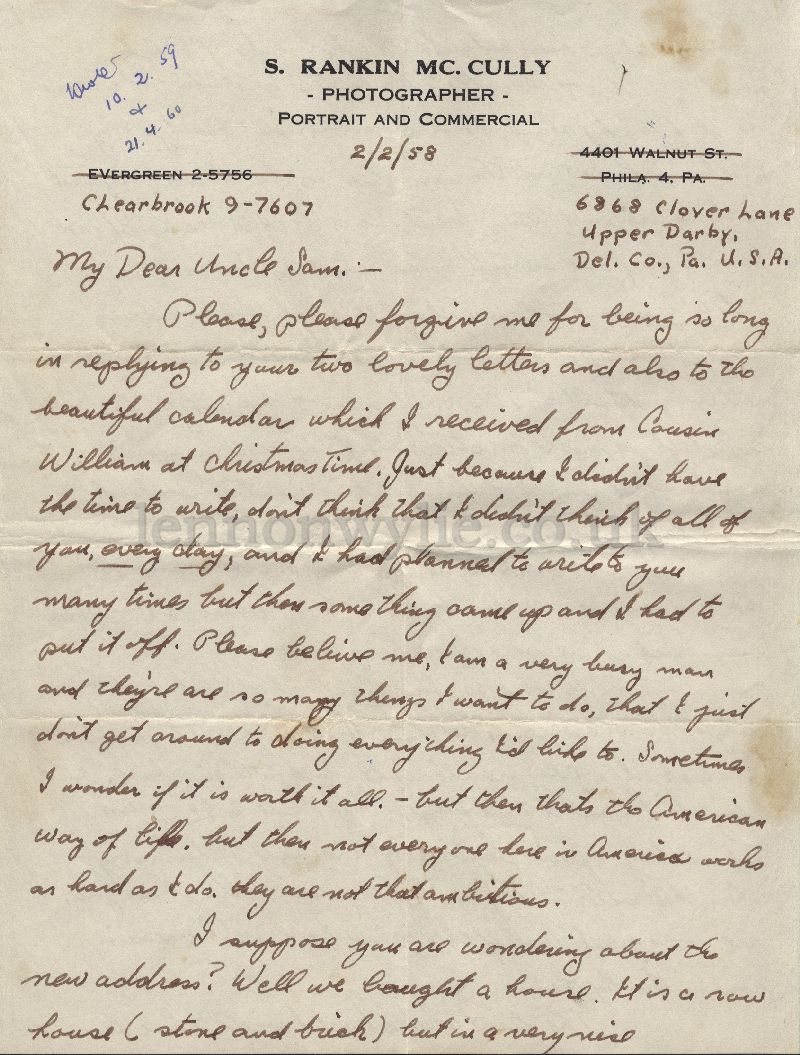 Wrote
10. 2. 59
+
21. 4. 60
S. RANKIN MC. CULLY
- PHOTOGRAPHER -
PORTRAIT AND COMMERCIAL
2/2/58
EVERGREEN 2-5756
CLearbrook 9-7607
4401 WALNUT ST.
PHILA. 4, PA.
6868 Clover Lane
Upper Darby,
Del. Co., Pa. U.S.A.
My Dear Uncle Sam. :-
Please, please forgive me for being so long
in replying to your two lovely letters and also to the
beautiful calendar which I received from Cousin
William at Christmas Time. Just because I didn't have
the time to write, don't think that I didn't think of all of
you, every day, and I had planned to write to you
many times but then something came up and I had to
put it off. Please belive me, I am a very busy man
and they're are so many things I want to do, that I just
don't get around to doing everything I'd like to. Sometimes
I wonder if it is worth it all. - but then thats the American
way of life. but then not everyone here in America works
as hard as I do. they are not that ambitious.
I suppose you are wondering about the
new address? Well we bought a house. It is a row
house ( stone and brick ) but in a very nise
lennonwylie.co.uk